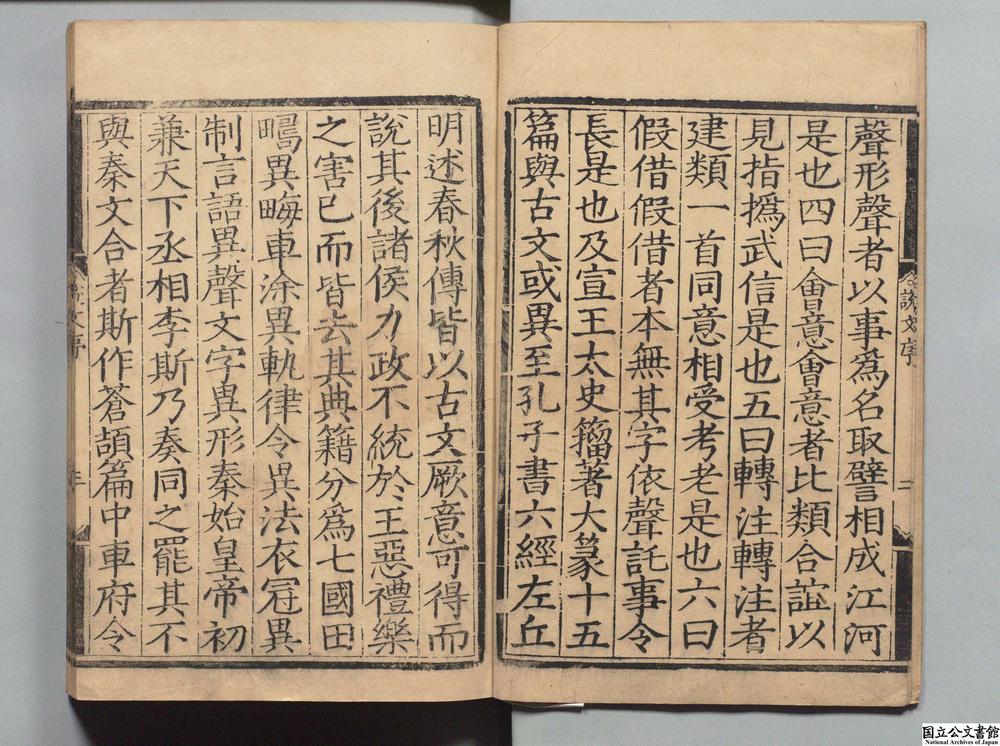 聲形聲者以事爲名取譬相成江河
是也四曰會意會意者比類合誼以
見指撝武信是也五曰轉注轉注者
建類一首同意相受考老是也六曰
假借假借者本無其字依聲託事令
長是也及宣王太史籒著大篆十五
篇與古文或異至孔子書六經左丘
說文序
二
明述春秋傳皆以古文厥意可得而
說其後諸侯力政不統於王惡禮樂
之害已而皆去其典籍分爲七國田
疇異畮車涂異軌律令異法衣冠異
制言語異聲文字異形秦始皇帝初
兼天下丞相李斯乃奏同之罷其不
與秦文合者斯作蒼頡篇中車府令
国立公文書館
National Archives of Japan